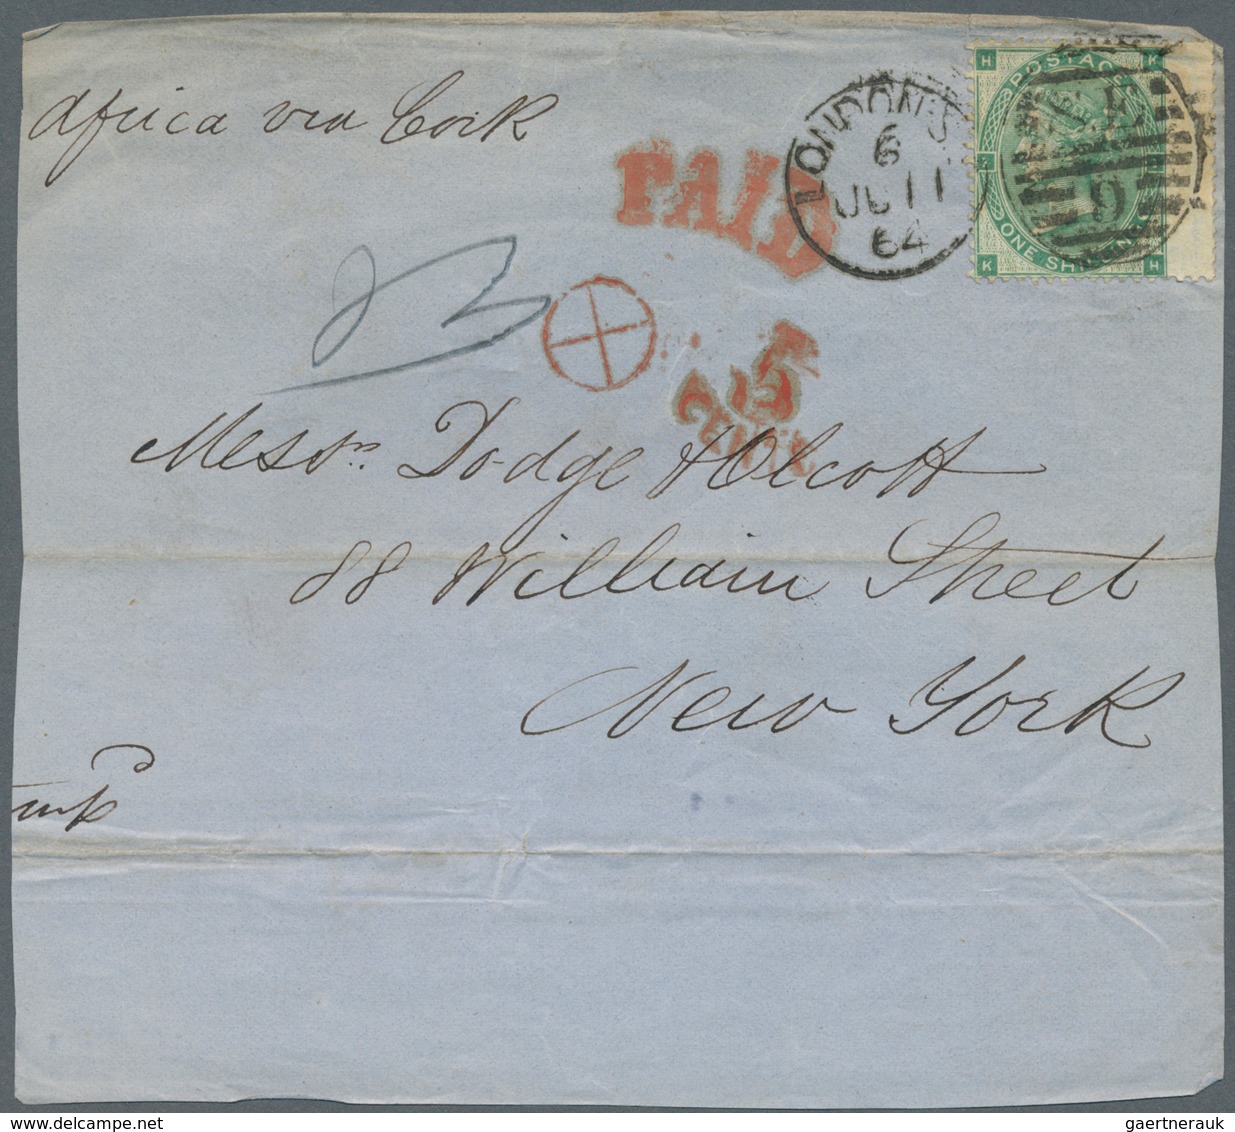 Africa via Cork
PAID
LONDON-S
6
JU 11
64
H K
POSTAGE
ONE SHILLING
K H
9
23
5
CENTS
Messrs Dodge & Olcott
88 William Street
New York
gaertnerauk